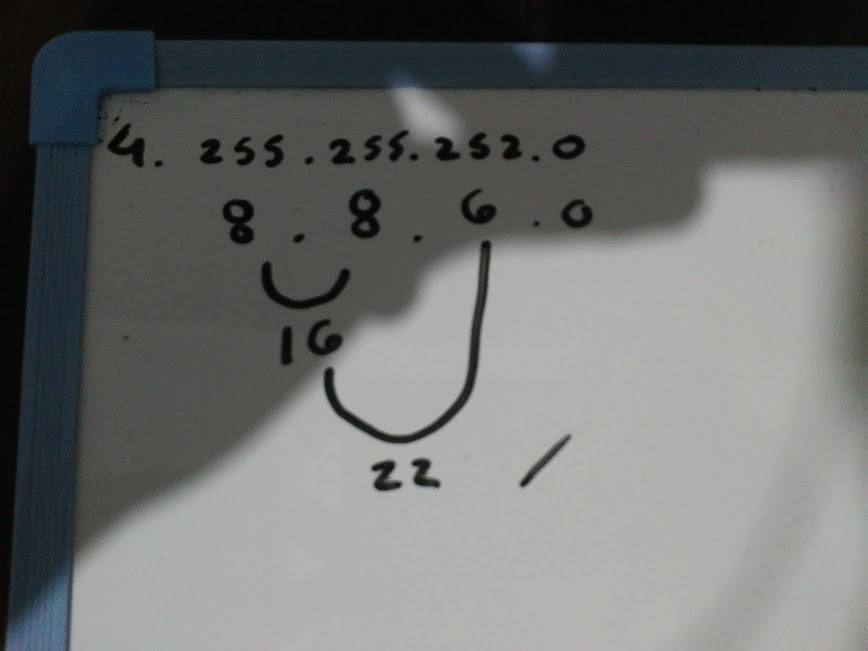 4. 255.255.252.0
8 . 8 . 6 . 0
16
22 /